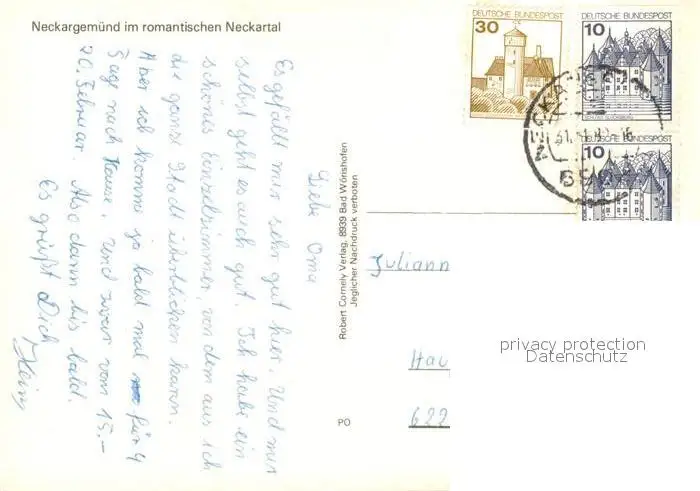 Neckargemünd im romantischen Neckartal
Liebe Oma
Es gefällt mir sehr gut hier. Und mir
selbst geht es auch gut. Ich habe ein
schönes Einzelzimmer, von dem aus ich
die ganze Stadt überblicken kann.
Aber ich komme ja bald mal für 4
Tage nach Hause. Und zwar vom 15.–
20. Februar. Also dann bis bald.
Es grüßt Dich
Robert Cornely Verlag, 8939 Bad Wörishofen
Jeglicher Nachdruck verboten
PO
DEUTSCHE BUNDESPOST
30
DEUTSCHE BUNDESPOST
10
SCHLOSS GLÜCKSBURG
10
Juliann
Hau
622
privacy protection
Datenschutz